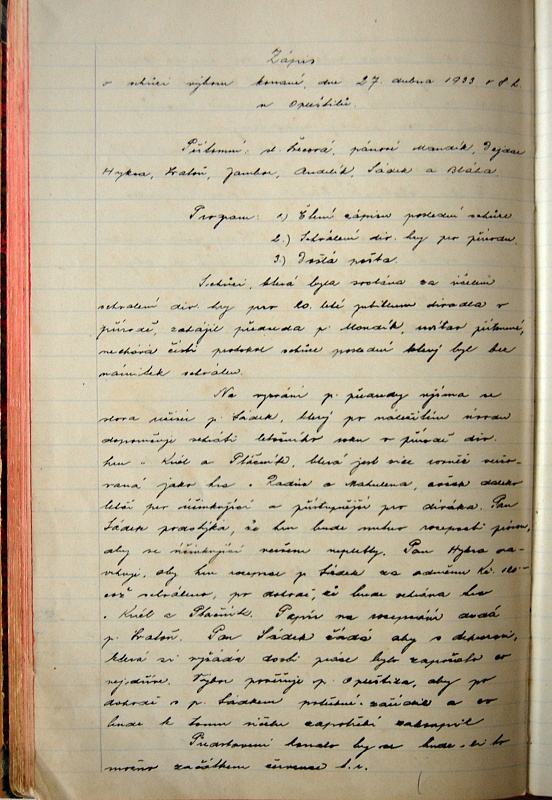 Zápis
o schůzi výboru konané, dne 27. dubna 1933 v 8 h.
u Opleštilů.
Přítomni: sl. Řezová, pánové Mandík, Dejdar
Hykva, Hratoň, Jambor, Andrlík, Sádek a Bláha.
Program: 1.) Čtení zápisu poslední schůze
2.) Schválení div. hry pro přírodu.
3.) Došlá pošta.
Schůzi, která byla svolána za účelem
schválení div. hry pro 20. leté jubileum divadla v
přírodě, zahájil předseda p. Mandík, uvítav přítomné,
nechává čísti protokol schůze poslední který byl bez
námitek schválen.
Na vyzvání p. předsedy ujímá se
slova režisér p. Sádek, který po náležitém úvodu
doporučuje sehráti letošního roku v přírodě div.
hru „Král a Ptáčník, která jest více rovněž
jako hra „Radúz a Mahulena, avšak daleko
lehčí pro účinkující a přístupnější pro diváka. Pan
Sádek podotýká, že hru bude nutno rozepsati
aby se účinkující veršem nepletly. Pan Hykva na-
vrhuje, aby hru rozepsal p. Sádek za odměnu Kč. 120 –
což schváleno, po dohodě, že bude sehrána hra
„Král a Ptáčník. Papír na rozepsání dodá
p. Hratoň. Pan Sádek žádá aby s dekorací,
která si vyžádá dosti práce bylo započato co
nejdříve. Výbor pověřuje p. Opleštila, aby po
dohodě s p. Sádkem potřebné zařídil a co
bude k tomu účelu zapotřebí zakoupil
Představení konalo by se bude-li to
možno začátkem července t. r.